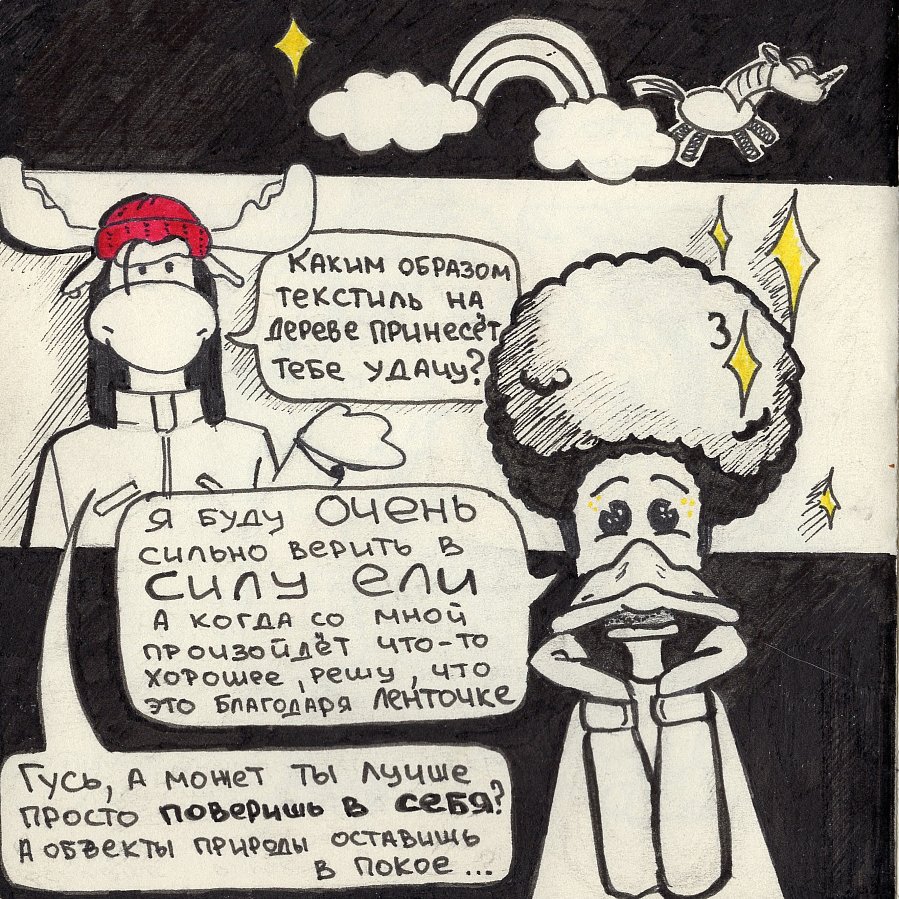 Каким образом
текстиль на
дереве принесёт
тебе удачу?
3
Я буду очень
сильно верить в
силу ели
А когда со мной
произойдёт что-то
хорошее, решу, что
это благодаря ленточке
Гусь, а может ты лучше
просто поверишь в себя?
А объекты природы оставишь
в покое...